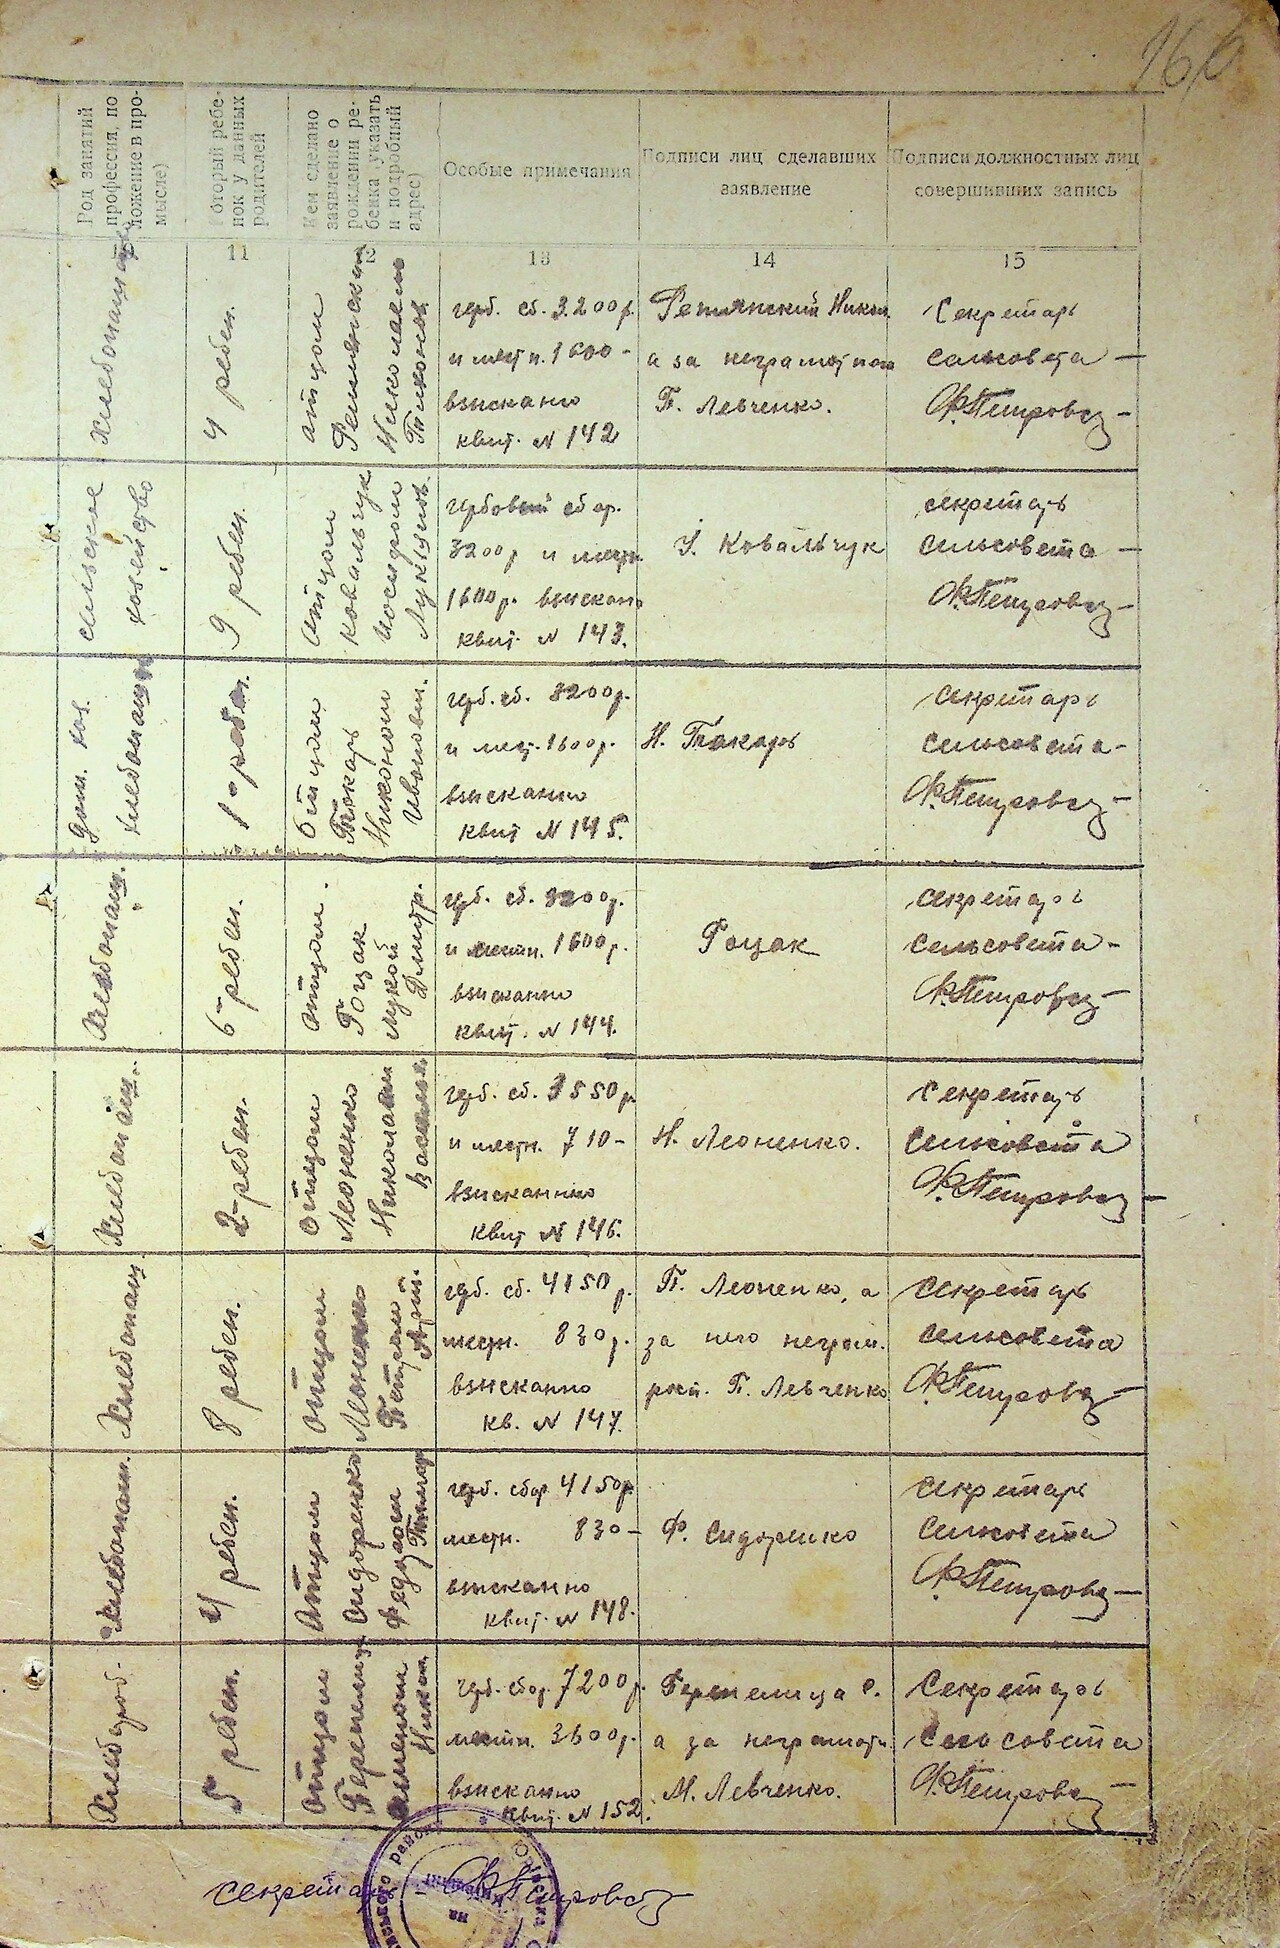 166
Род занятий
профессия, по
ложение в про-
мысле)
оторый ребе-
нок у данных
родителей
Кем сделано
заявление о
рождении ре-
бенка (указать
и подробный
адрес)
Особые примечания
Подписи лиц сделавших
заявление
Подписи должностных лиц
совершивших запись
11
12
13
14
15
Хлебопаш
4 ребен.
отцом
Николаем
герб. сб. 3200 р.
и местн. 1600 -
взыскано
квит. N 142
Никол.
а за неграмотного
П. Левченко.
Секретарь
сельсовета —
Ф.Петровец —
сильское
хозейство
9 ребен.
отцом
Ковальчук
Иосифом
Лукьянов.
гербовый сбор.
3200 р и местн
1600 р. взыскано
квит. N 143.
И. Ковальчук
секретарь
сельсовета —
Ф.Петровец —
дом. хоз.
хлебопаш
1-ребен.
отцом
Токарь
Никоном
Ивановым.
герб. сб. 3200 р.
и мест. 1600 р.
взысканно
квит N 145.
Н. Токарь
секретарь
сельсовета -
Ф.Петровец —
Хлебопаш.
6-ребен.
отцом.
Гоцак
Лукой
Дмитр.
герб. сб. 3200 р.
и местн. 1600 р.
взысканно
квит. N 144.
Гоцак
секретарь
сельсовета -
Ф.Петровец —
Хлебопаш.
2-ребен.
отцом
Леоненко
Николаем
Васильев
герб. сб. 3550 р
и местн. 710 -
взысканно
квит N 146.
Н. Леоненко.
Секретарь
сельсовета
Ф.Петровец —
Хлебопаш.
8 ребен.
отцом
Леоненко
Петром
герб. сб. 4150 р.
местн. 830 р.
взысканно
кв. N 147.
П. Леоненко, а
за него неграм.
росп. П. Левченко
секретарь
сельсовета
Ф.Петровец —
Хлебопаш.
4 ребен.
отцом
Сидоренко
Федором
герб. сбор 4150 р
местн. 830 —
взысканно
квит. N 148.
Ф. Сидоренко
секретарь
сельсовета
Ф.Петровец —
Хлебороб.
5 ребен.
отцом
Семеном
Никит.
герб. сбор. 7200 р.
местн. 3600 р.
взысканно
квит. N 152.
С.
а за неграмотн.
М. Левченко.
Секретарь
Сельсовета
Ф.Петровец —
секретарь - Ф.Петровец
ського району